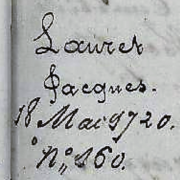 Laurer
Jacques.
18 Mai 9720.
N° 160.